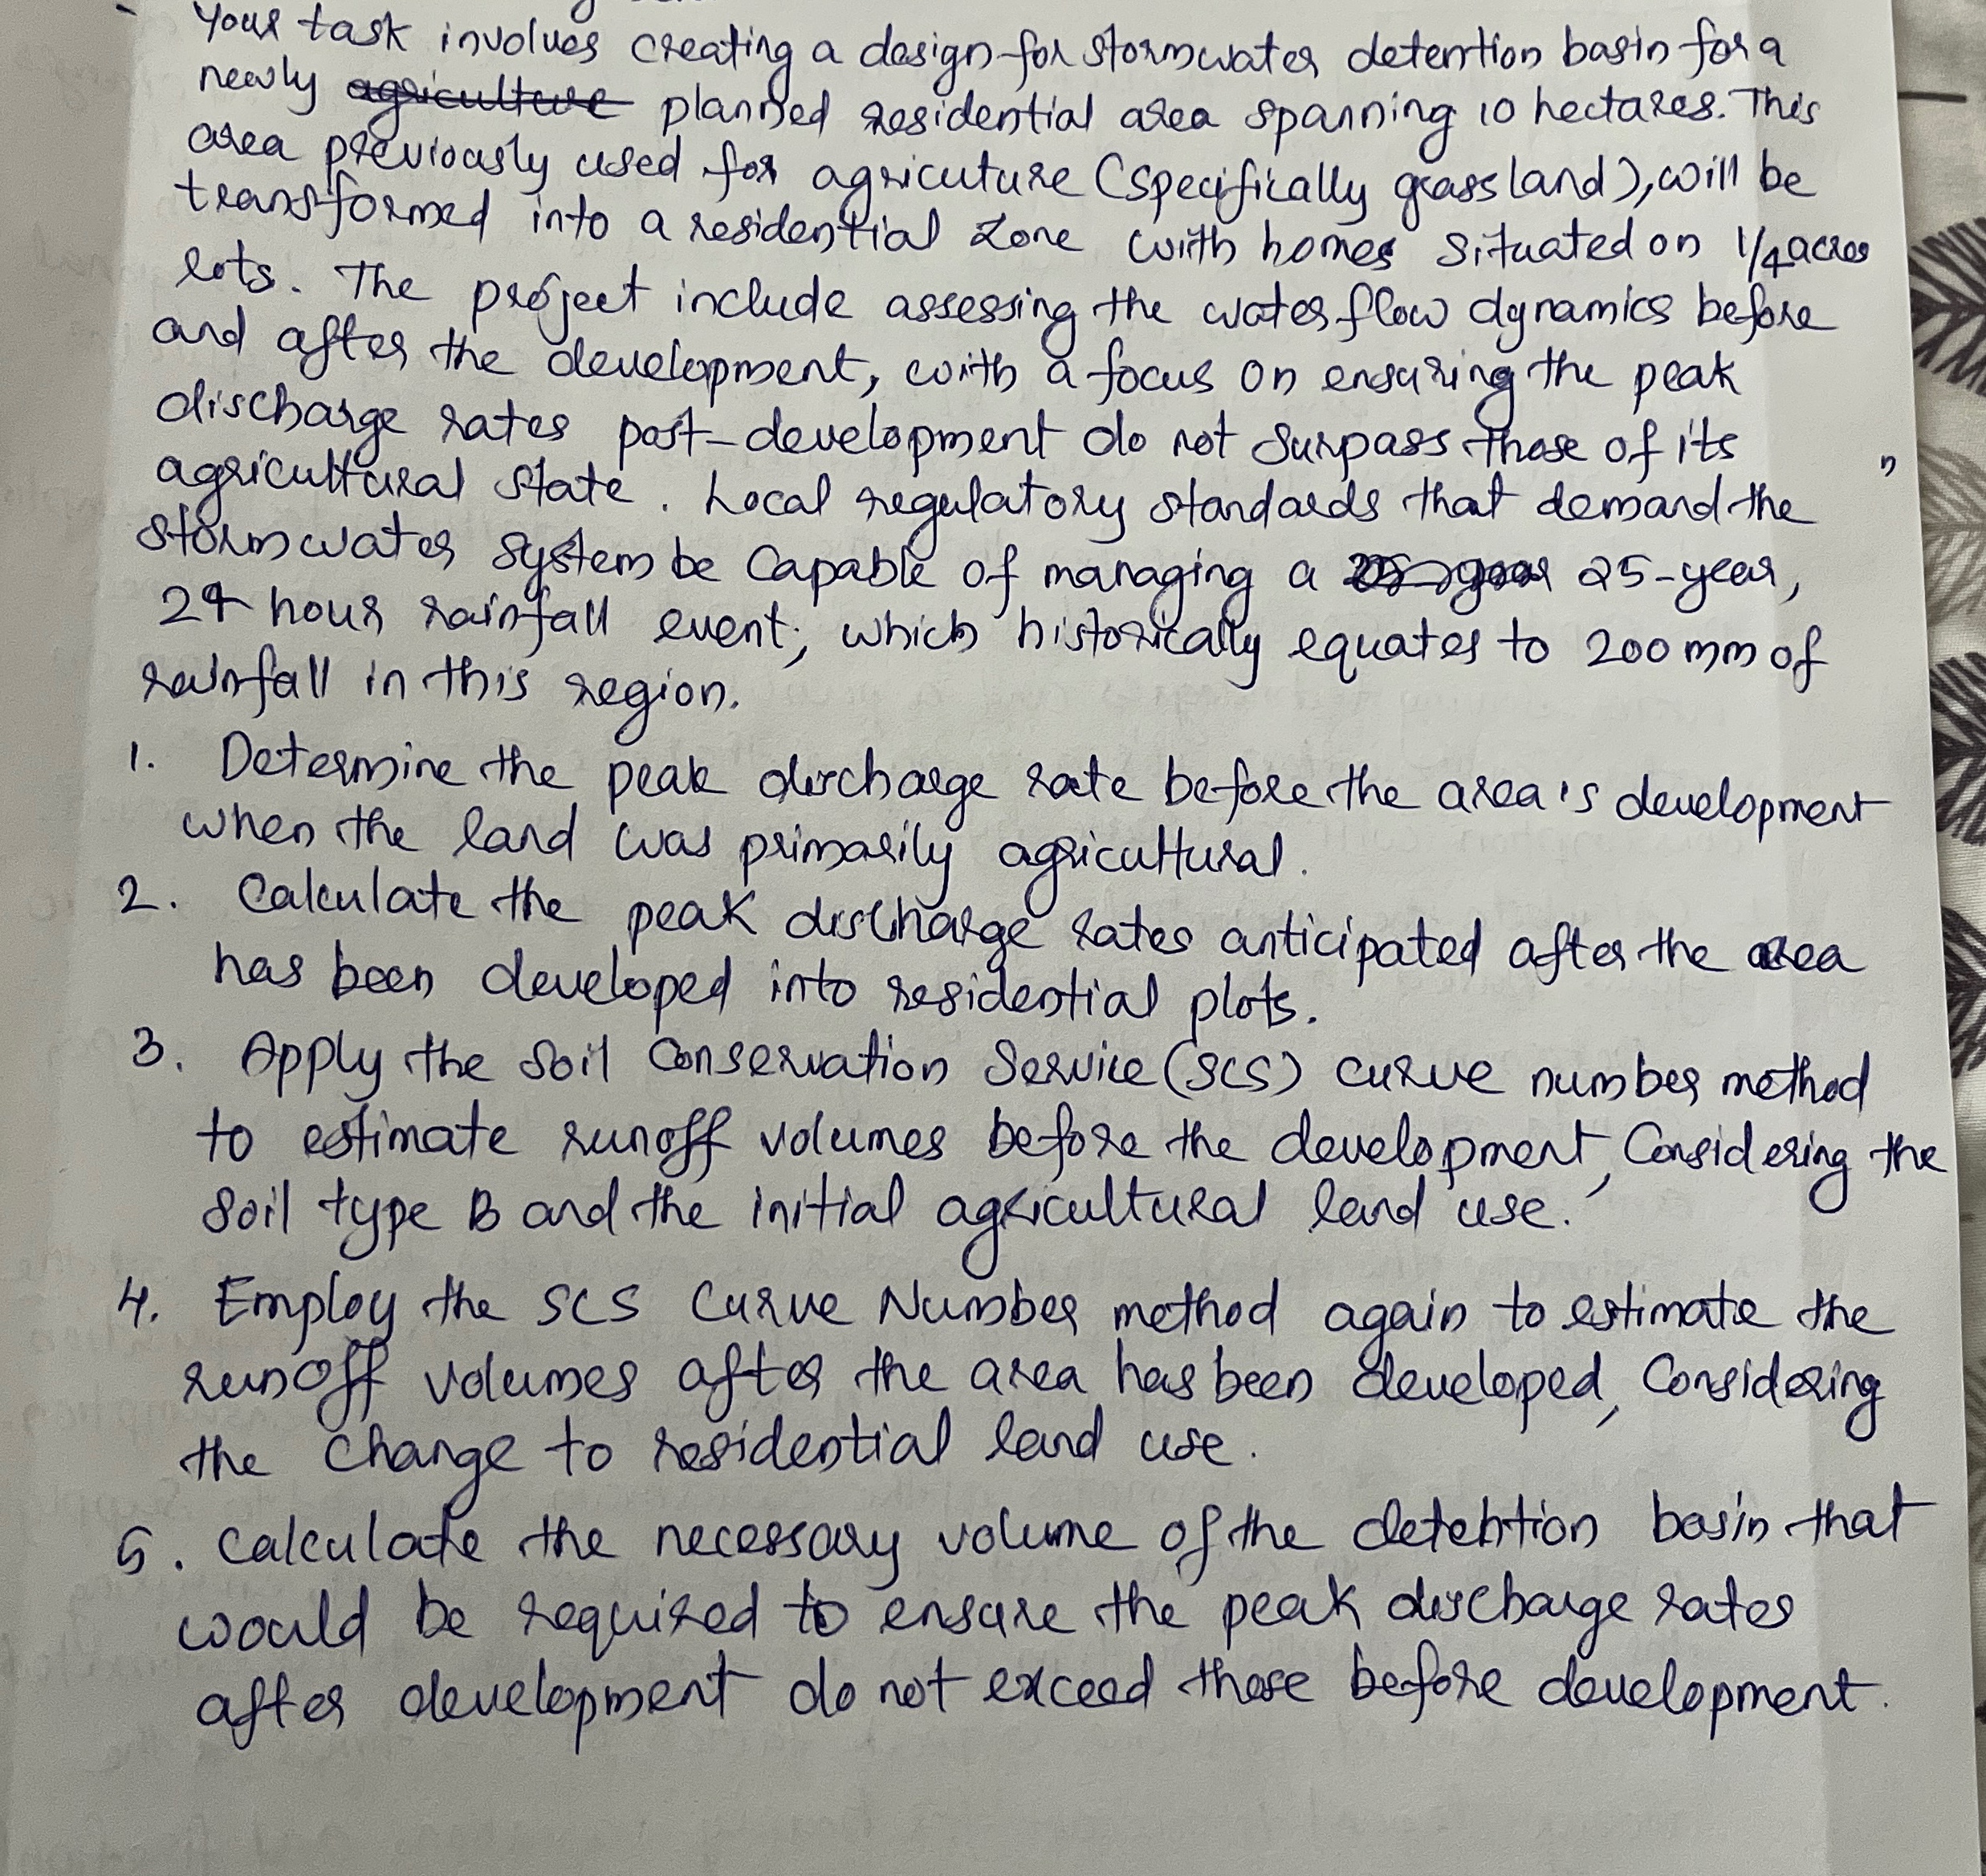 Your task involves creating a design for stormwater detention basin for a
newly agriculture planned residential area spanning 10 hectares. This
area previously used for agricuture (specifically grassland), will be
transformed into a residential zone with homes situated on 1/4 acres
lots. The project include assessing the water flow dynamics before
and after the development, with a focus on ensuring the peak
discharge rates post-development do not surpass those of its
agricultural state. Local regulatory standards that demand the
stormwater system be capable of managing a 25-year,
24 hour rainfall event, which historically equates to 200 mm of
rainfall in this region.
1. Determine the peak discharge rate before the area's development
when the land was primarily agricultural.
2. Calculate the peak discharge rates anticipated after the area
has been developed into residential plots.
3. Apply the Soil Conservation Service (SCS) curve number method
to estimate runoff volumes before the development, Considering the
Soil type B and the initial agricultural land use.
4. Employ the SCS Curve Number method again to estimate the
runoff volumes after the area has been developed, Considering
the change to residential land use.
5. Calculate the necessary volume of the detention basin that
would be required to ensure the peak discharge rates
after development do not exceed those before development.